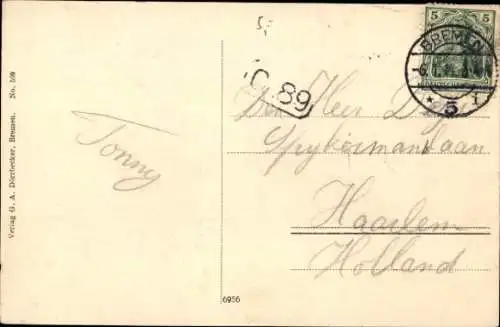 5,-
5 5
BREMEN
5
C.89
Den Heer
Spykermanlaan
Haarlem
Holland
Tonny
Verlag G. A. Dörrbecker, Bremen. No. 109
6956